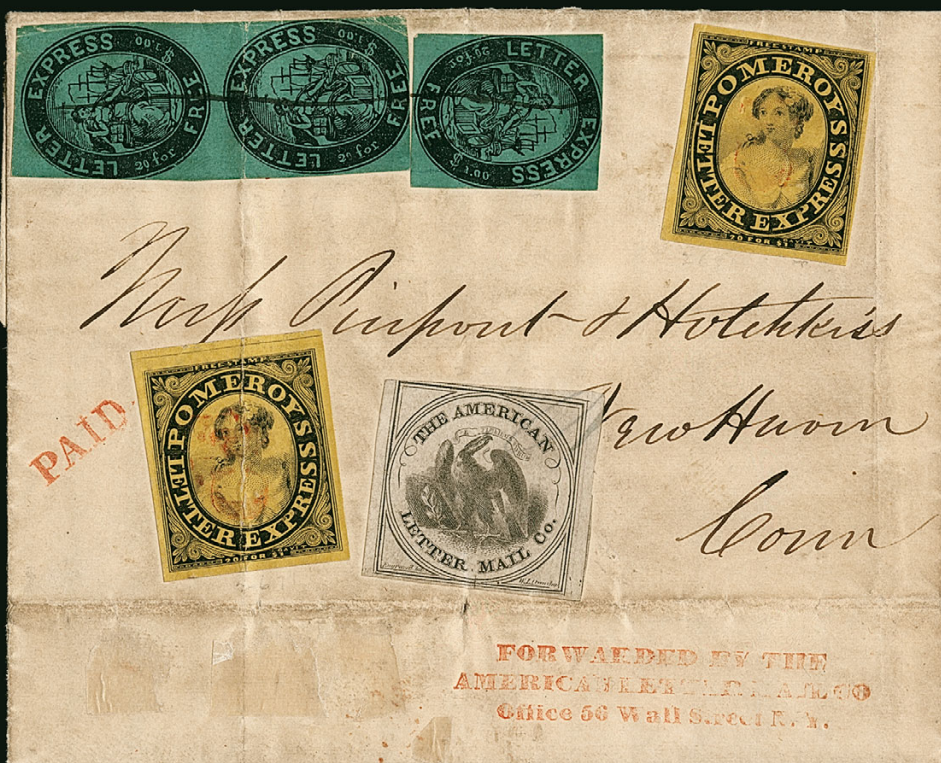 LETTER EXPRESS FREE
20 for $1.00
LETTER EXPRESS FREE
20 for $1.00
LETTER EXPRESS FREE
20 for $1.00
FREE STAMP
POMEROY'S
LETTER EXPRESS
20 FOR $1
Pierpont & Hotchkiss
New Haven
Conn
PAID
FREE STAMP
POMEROY'S
LETTER EXPRESS
20 FOR $1
THE AMERICAN
LETTER MAIL Co.
FORWARDED BY THE
AMERICAN LETTER MAIL CO
Office 56 Wall Street N. Y.